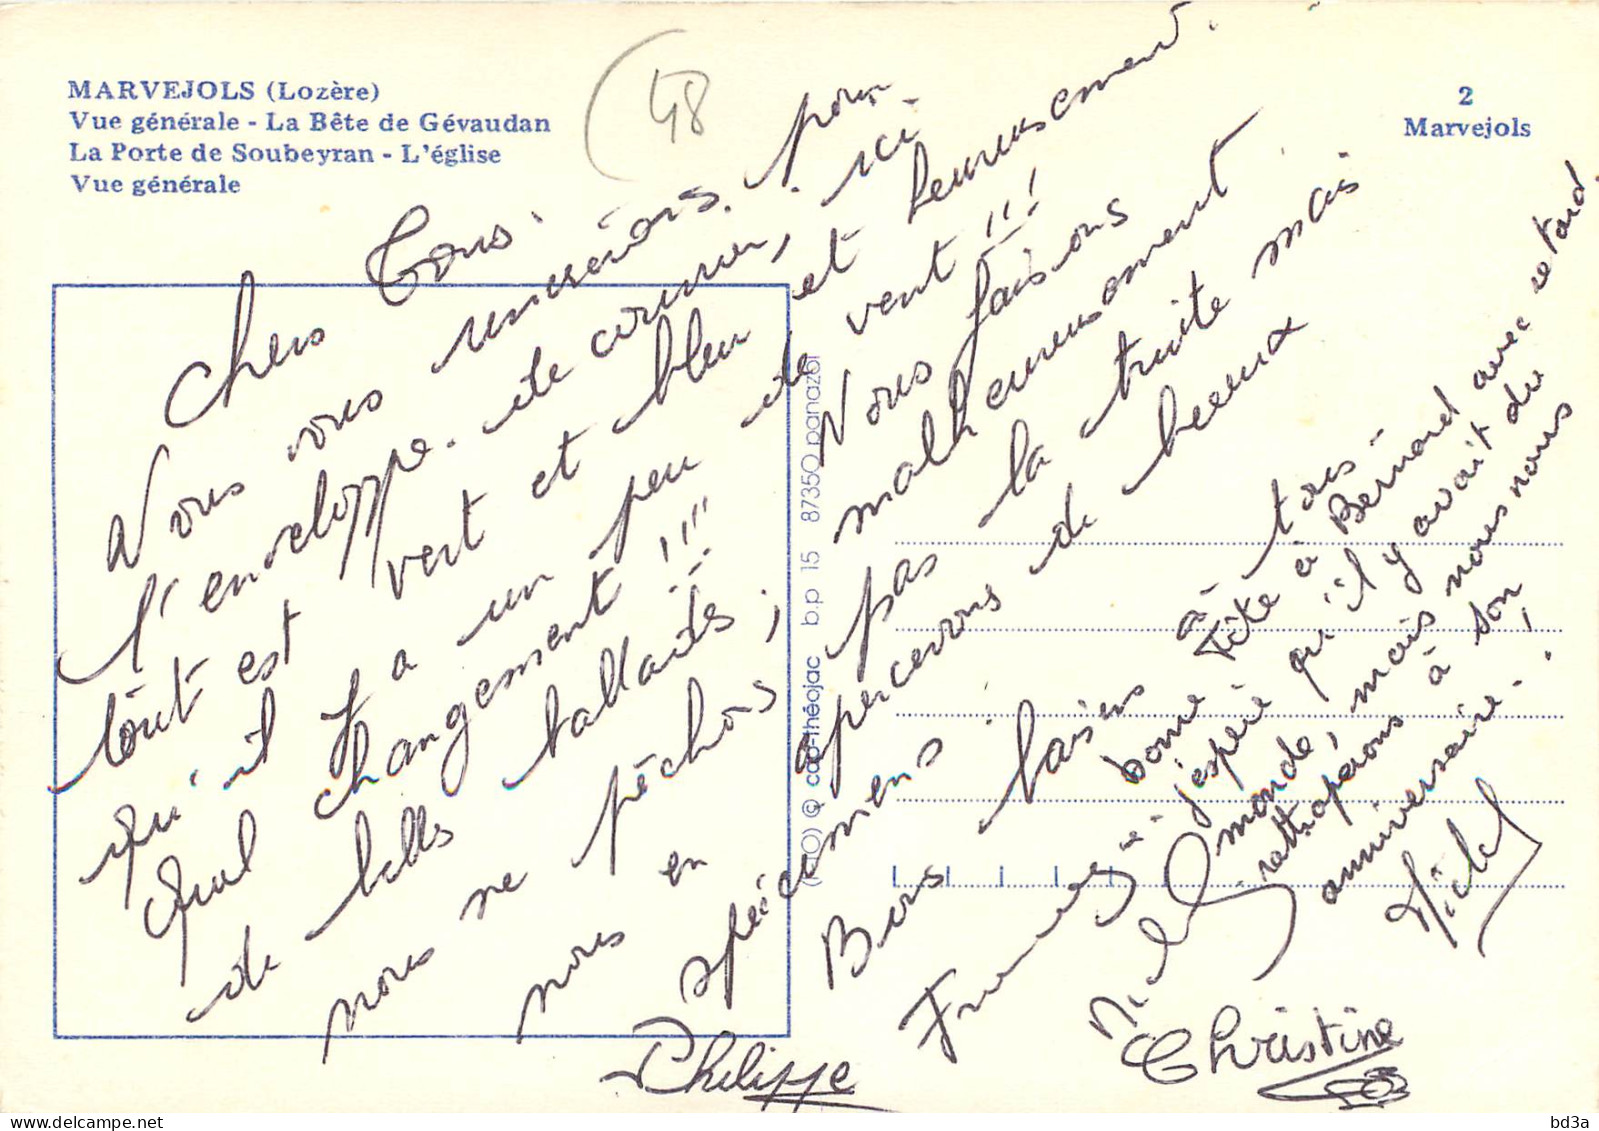 MARVEJOLS (Lozère)
Vue générale - La Bête de Gévaudan
La Porte de Soubeyran - L'église
Vue générale
48
2
Marvejols
Chers Tous.
Nous vous remercions pour
l'enveloppe. de courrier, ici
tout est vert et bleu et heureusement.
qu'il y a un peu de vent !!!
Quel changement !!!!
de belles ballades,
nous ne pêchons
nous en
Nous faisons
malheureusement
pas la truite mais
apercevons de beaux
spécimens.
spécimens.
Bons baisers à tous -
bonne Fête à Bernard avec retard
j'espère qu'il y avait du
monde, mais nous nous
rattraperons à son
anniversaire.
Michel
Philippe
Christine
(RTO) © cap-théojac b.p 15 87350 panazol
bd3a